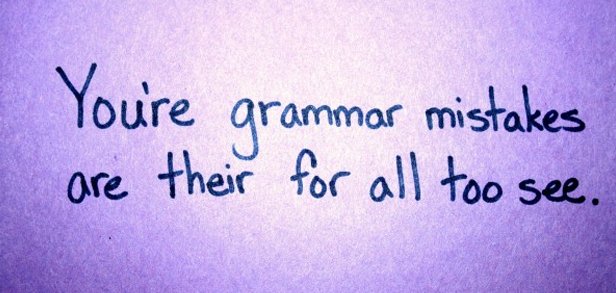 You're grammar mistakes
are their for all too see.